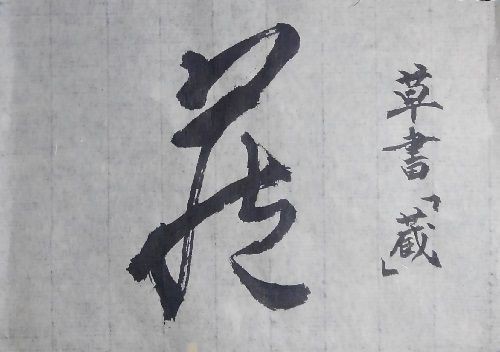 草書「蔵」
蔵